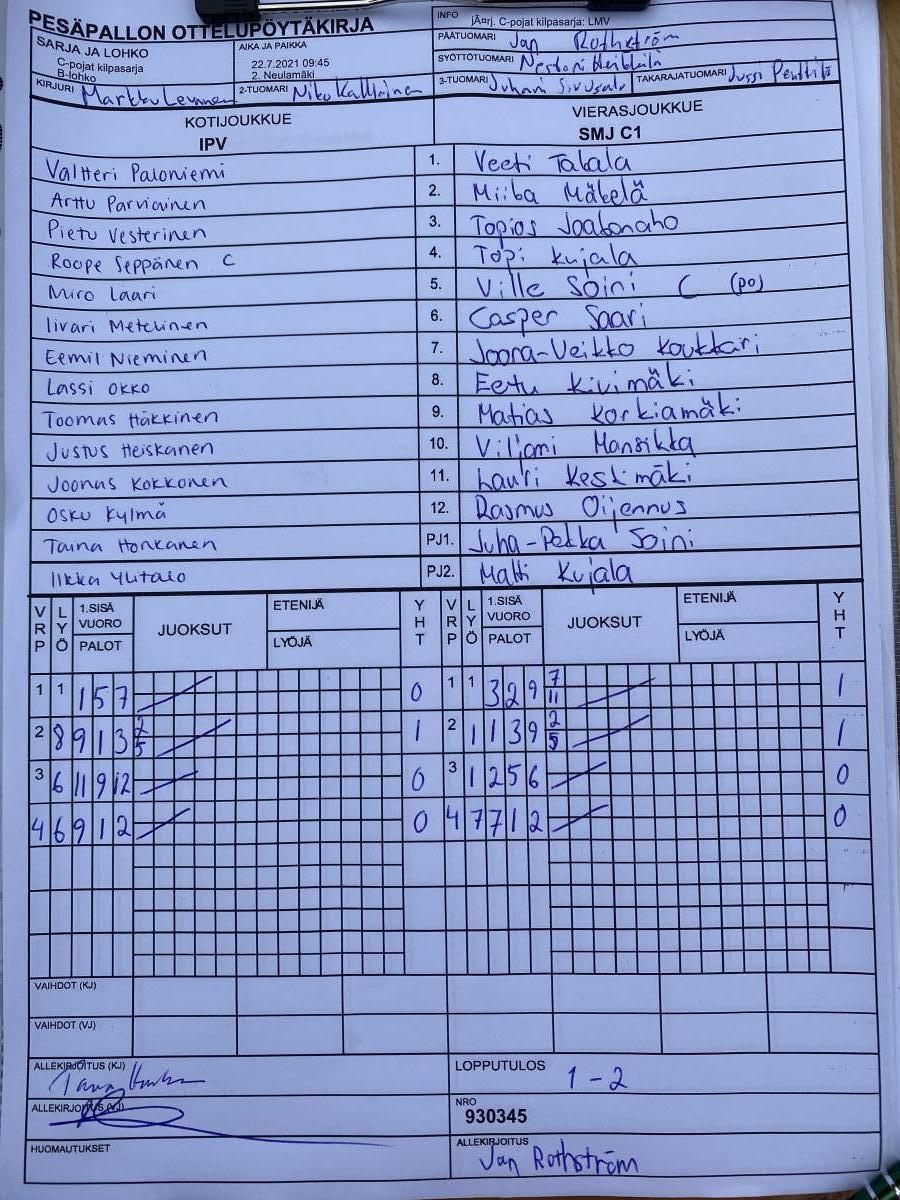 PESÄPALLON OTTELUPÖYTÄKIRJA
INFO jÃ¤rj. C-pojat kilpasarja: LMV
SARJA JA LOHKO
C-pojat kilpasarja
B-lohko
AIKA JA PAIKKA
22.7.2021 09:45
2. Neulamäki
PÄÄTUOMARI Jan Rothström
SYÖTTÖTUOMARI Nestori Heikkilä
KIRJURI Markku
2-TUOMARI Niko
3-TUOMARI Juhani
TAKARAJATUOMARI Jussi Penttilä
KOTIJOUKKUE VIERASJOUKKUE
IPV SMJ C1
Valtteri Paloniemi 1. Veeti Takala
Arttu Parviainen 2. Miika Mäkelä
Pietu Vesterinen 3. Topias Jaakonaho
Roope Seppänen C 4. Topi Kujala
Miro Laari 5. Ville Soini C (po)
Iivari Metelinen 6. Casper Saari
Eemil Nieminen 7. Joona-Veikko Koukkari
Lassi Okko 8. Eetu Kivimäki
Toomas Häkkinen 9. Matias Korkiamäki
Justus Heiskanen 10. Viljami Mansikka
Joonas Kokkonen 11. Lauri Keskimäki
Osku Kylmä 12. Rasmus Oijennus
Taina Honkanen PJ1. Juha-Pekka Soini
Ilkka Ylitalo PJ2. Matti Kujala
VRP LYÖ 1.SISÄ VUORO PALOT JUOKSUT ETENIJÄ LYÖJÄ YHT VRP LYÖ 1.SISÄ VUORO PALOT JUOKSUT ETENIJÄ LYÖJÄ YHT
1 1 1 5 7 0 1 1 3 2 9 7 11 1
2 8 9 1 3 2 5 1 2 1 1 3 9 2 5 1
3 6 11 9 12 0 3 1 2 5 6 0
4 6 9 1 2 0 4 7 7 1 2 0
VAIHDOT (KJ)
VAIHDOT (VJ)
ALLEKIRJOITUS (KJ)
LOPPUTULOS 1 - 2
ALLEKIRJOITUS (VJ)
NRO
930345
HUOMAUTUKSET
ALLEKIRJOITUS
Jan Rothström